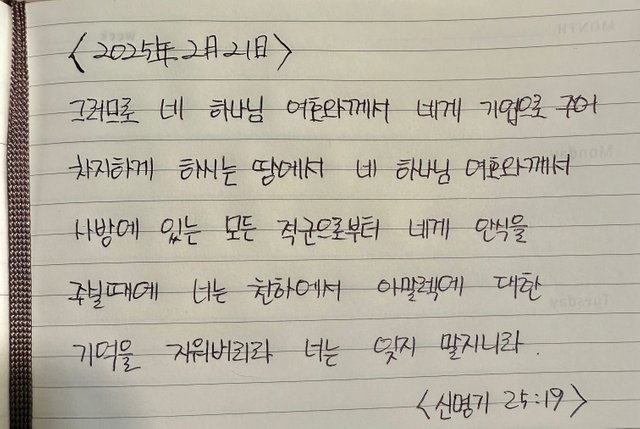 <2025年 2月 21日>
그러므로 네 하나님 여호와께서 네게 기업으로 주어
차지하게 하시는 땅에서 네 하나님 여호와께서
사방에 있는 모든 적군으로부터 네게 안식을
주실때에 너는 천하에서 아말렉에 대한
기억을 지워버리라 너는 잊지 말지니라.
<신명기 25:19>
MONTH
WEEK
Monday
Tuesday